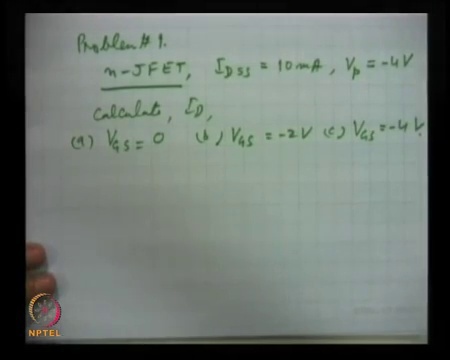 Problem # 1.
n-JFET, I_DSS = 10mA, V_p = -4V
Calculate, I_D,
(a) V_GS = 0 (b) V_GS = -2V (c) V_GS = -4V.
NPTEL